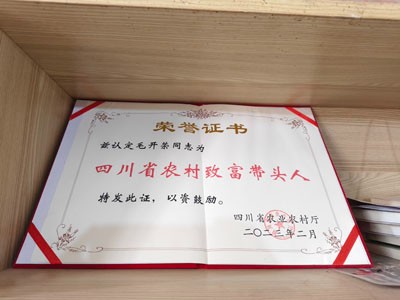 荣誉证书
兹认定毛开荣同志为
四川省农村致富带头人
特发此证，以资鼓励。
四川省农业农村厅
二〇二二年二月